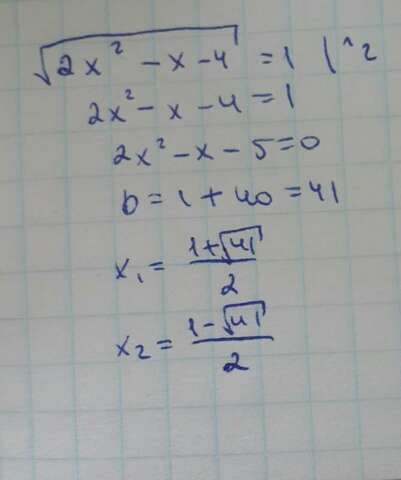 √(2x² - x - 4) = 1 | ^2
2x² - x - 4 = 1
2x² - x - 5 = 0
D = 1 + 40 = 41
x₁ = (1+√41)/2
x₂ = (1-√41)/2